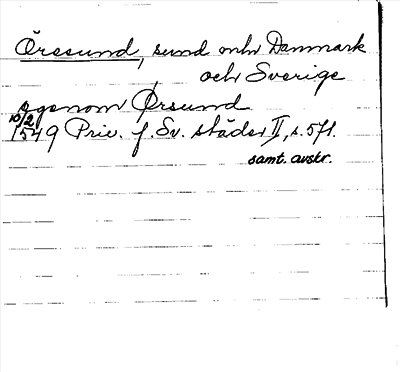 Öresund, sund mln Danmark
och Sverige
egenom Ørsund
10/2
1549 Priv. f. Sv. städer II, s. 571.
samt. avskr.